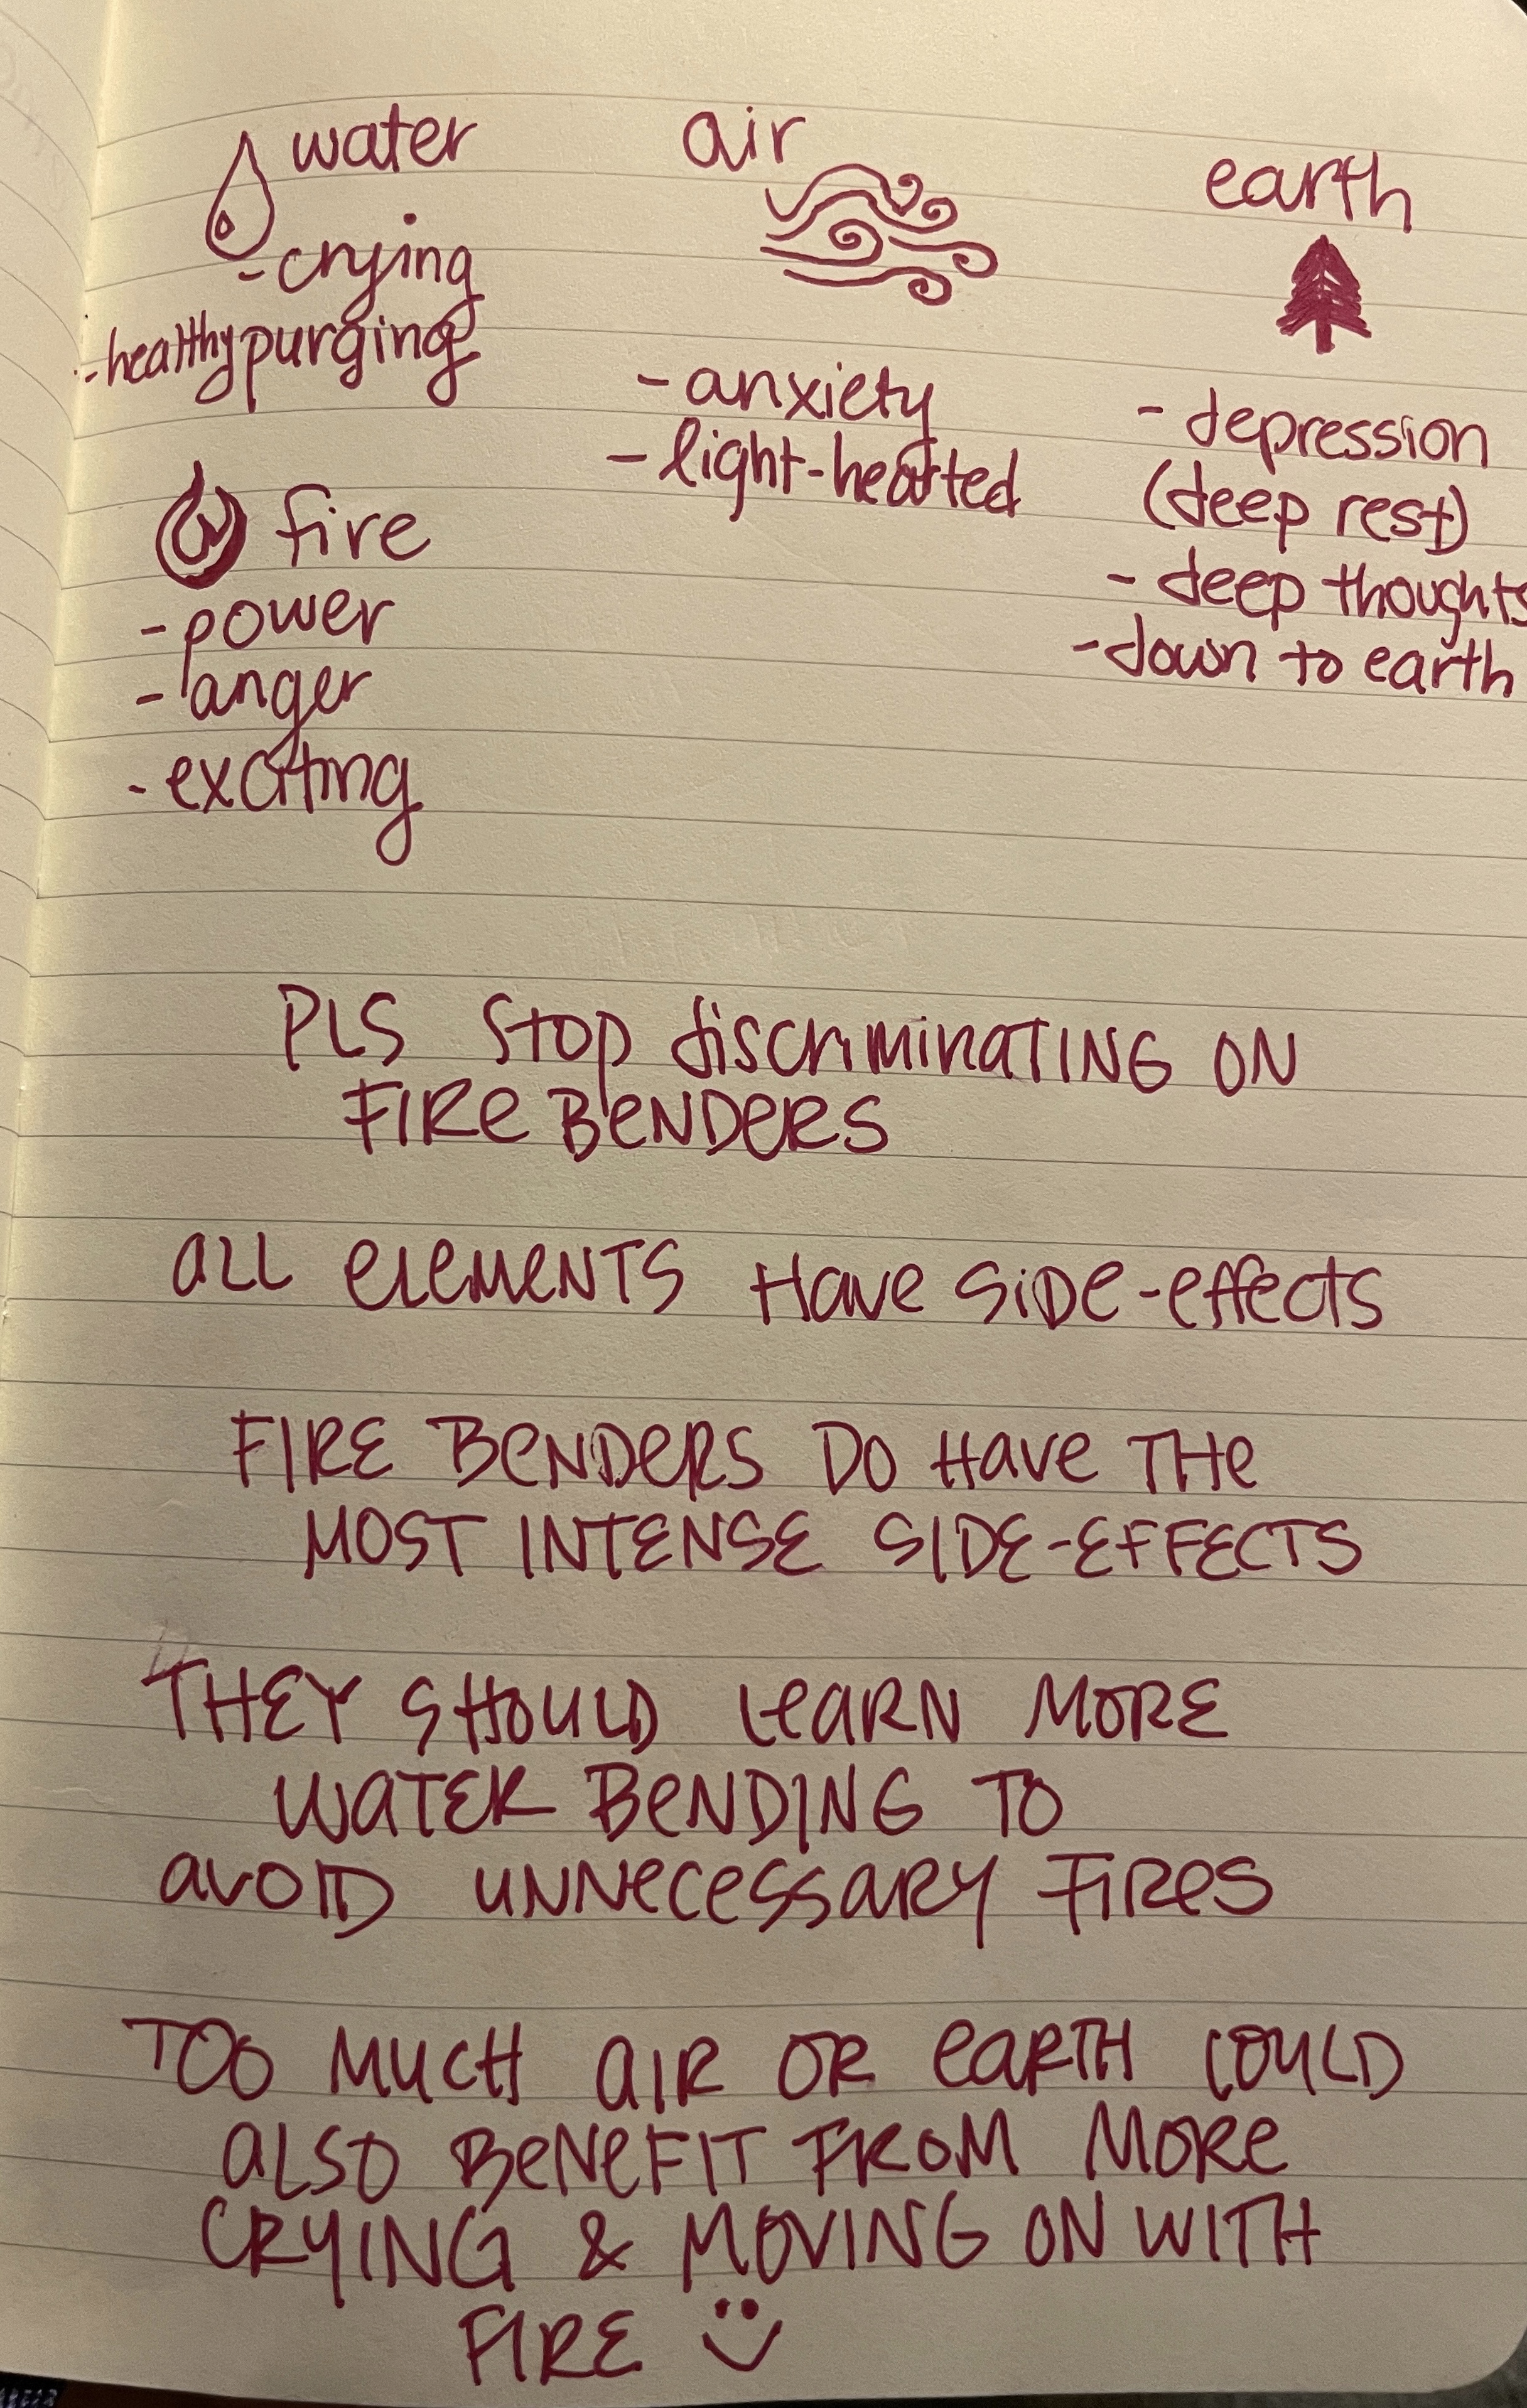 water
- crying
- healthy purging
air
- anxiety
- light-hearted
earth
- depression
(deep rest)
- deep thoughts
- down to earth
fire
- power
- anger
- exciting
PLS STOP discriminATING ON
FIRE BENDERS
ALL ELEMENTS HAVE SIDE-effects
FIRE BENDERS DO HAVE THE
MOST INTENSE SIDE-EFFECTS
THEY SHOULD LEARN MORE
WATER BENDING TO
AVOID UNNECESSARY FIRES
TOO MUCH AIR OR EARTH COULD
ALSO BENEFIT FROM MORE
CRYING & MOVING ON WITH
FIRE